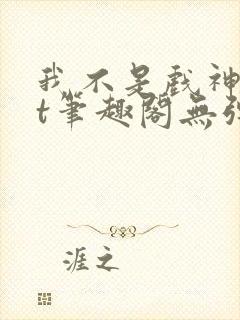 我不是戲神
t筆趣閣無弹
涯之